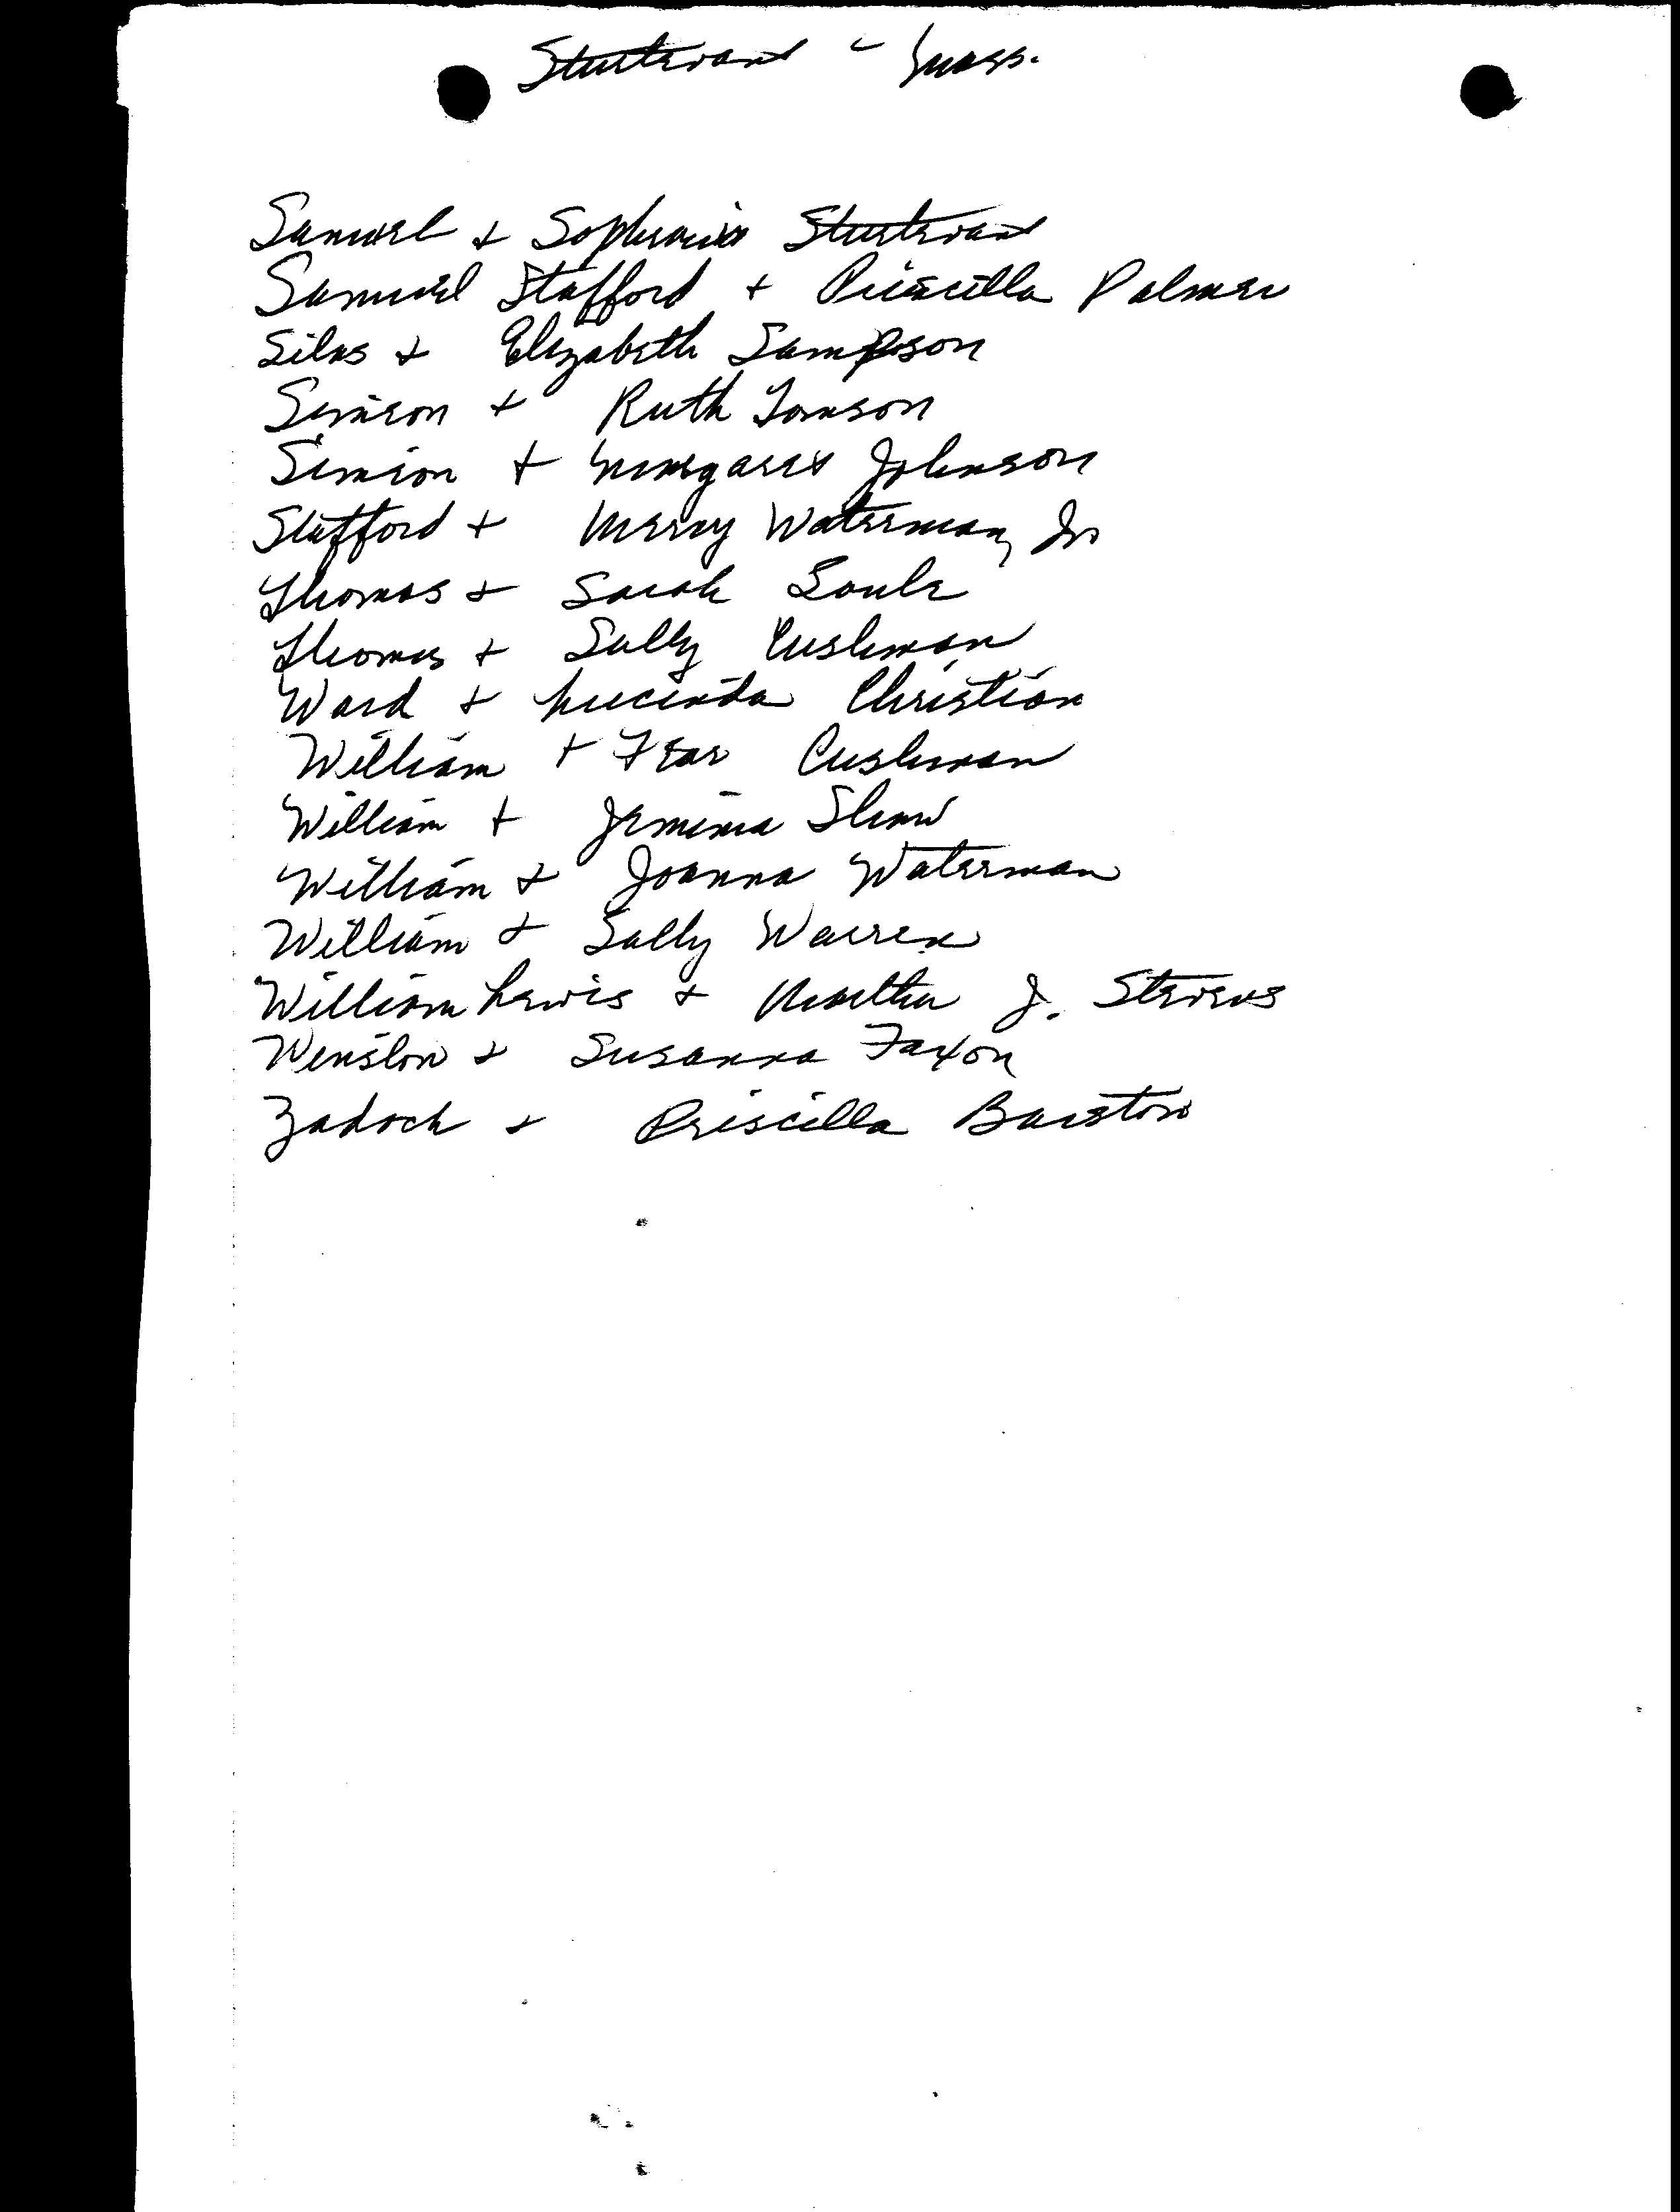 Sturtevant - Mass.
Samuel + Sophronia Sturtevant
Samuel Stafford + Priscilla Palmer
Silas + Elizabeth Sampson
Simeon + Ruth Tomson
Simeon + Margaret Johnson
Stafford + Mercy Waterman, Jr
Thomas + Sarah Soule
Thomas + Sally Cushman
Ward + Lucinda Christian
William + Fear Cushman
William + Jemima Shaw
William + Joanna Waterman
William + Sally Warren
William Lewis + Martha J. Stevens
Winslow + Susanna Faxon
Zadock + Priscilla Barstow